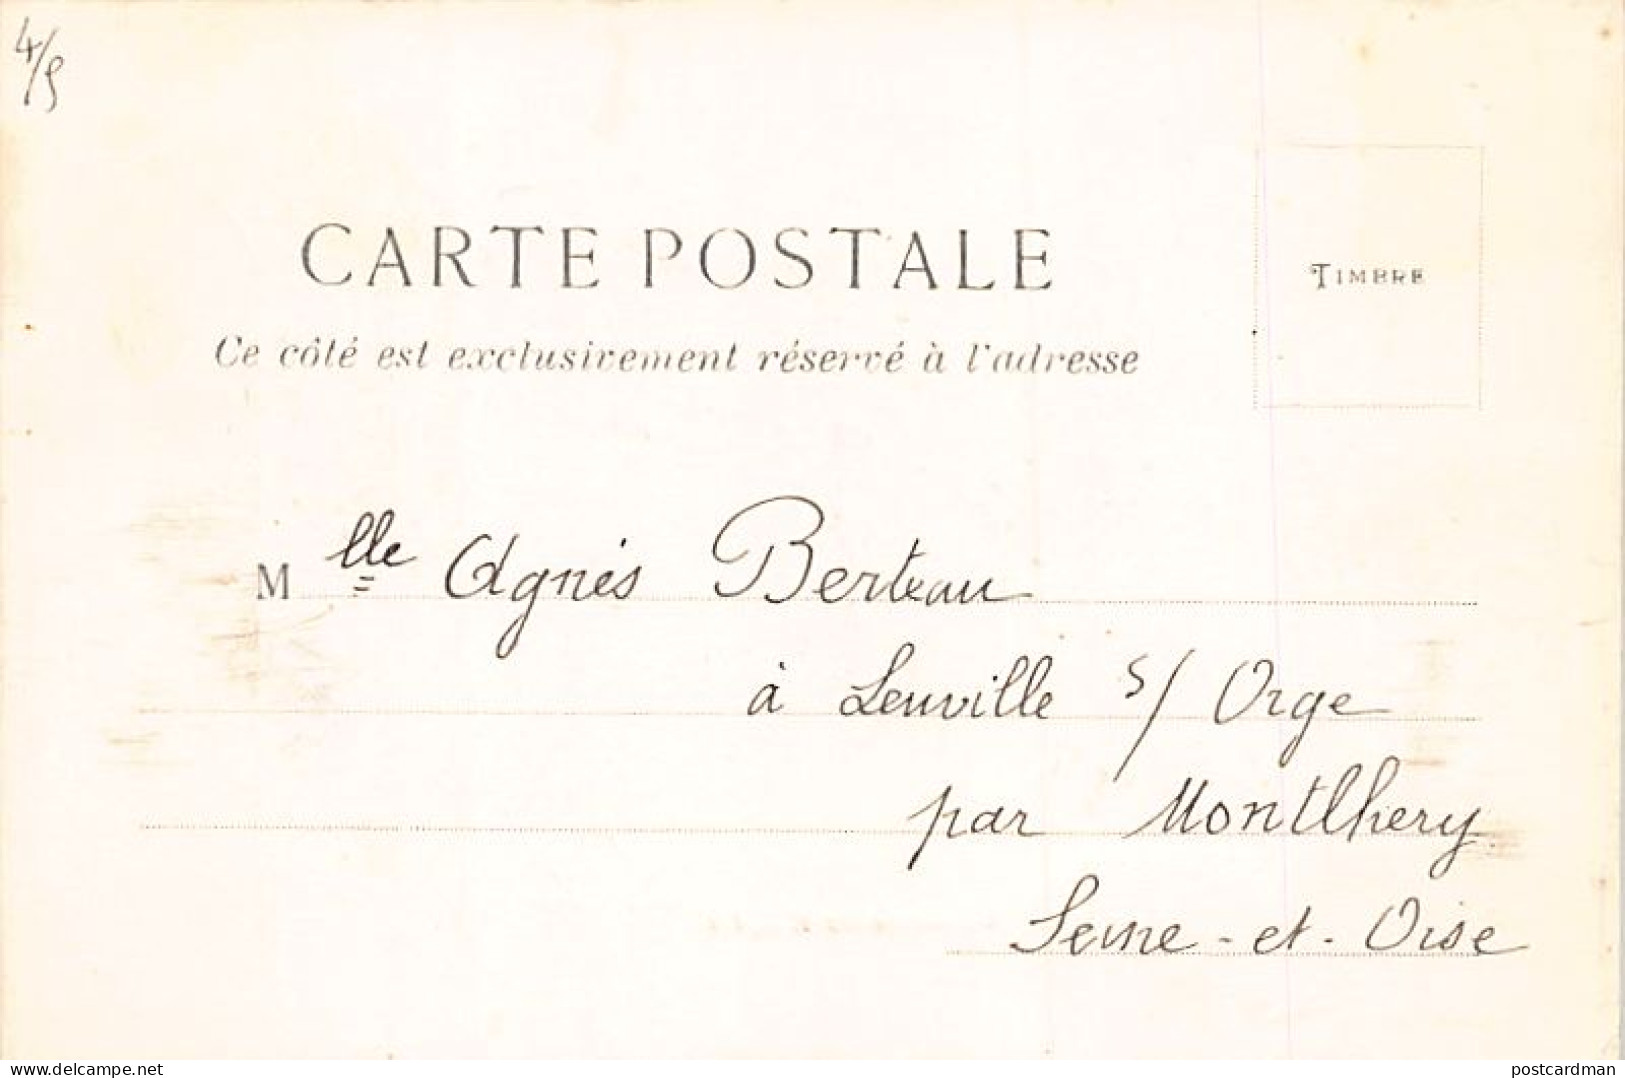 4/5
CARTE POSTALE
TIMBRE
Ce côté est exclusivement réservé à l'adresse
Mlle Agnès Berteau
à Leuville s/ Orge
par Montlhery
Seine-et-Oise
delcampe.net
postcardman